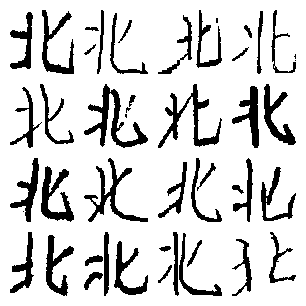 北北北北
北北北北
北北北北
北北北北